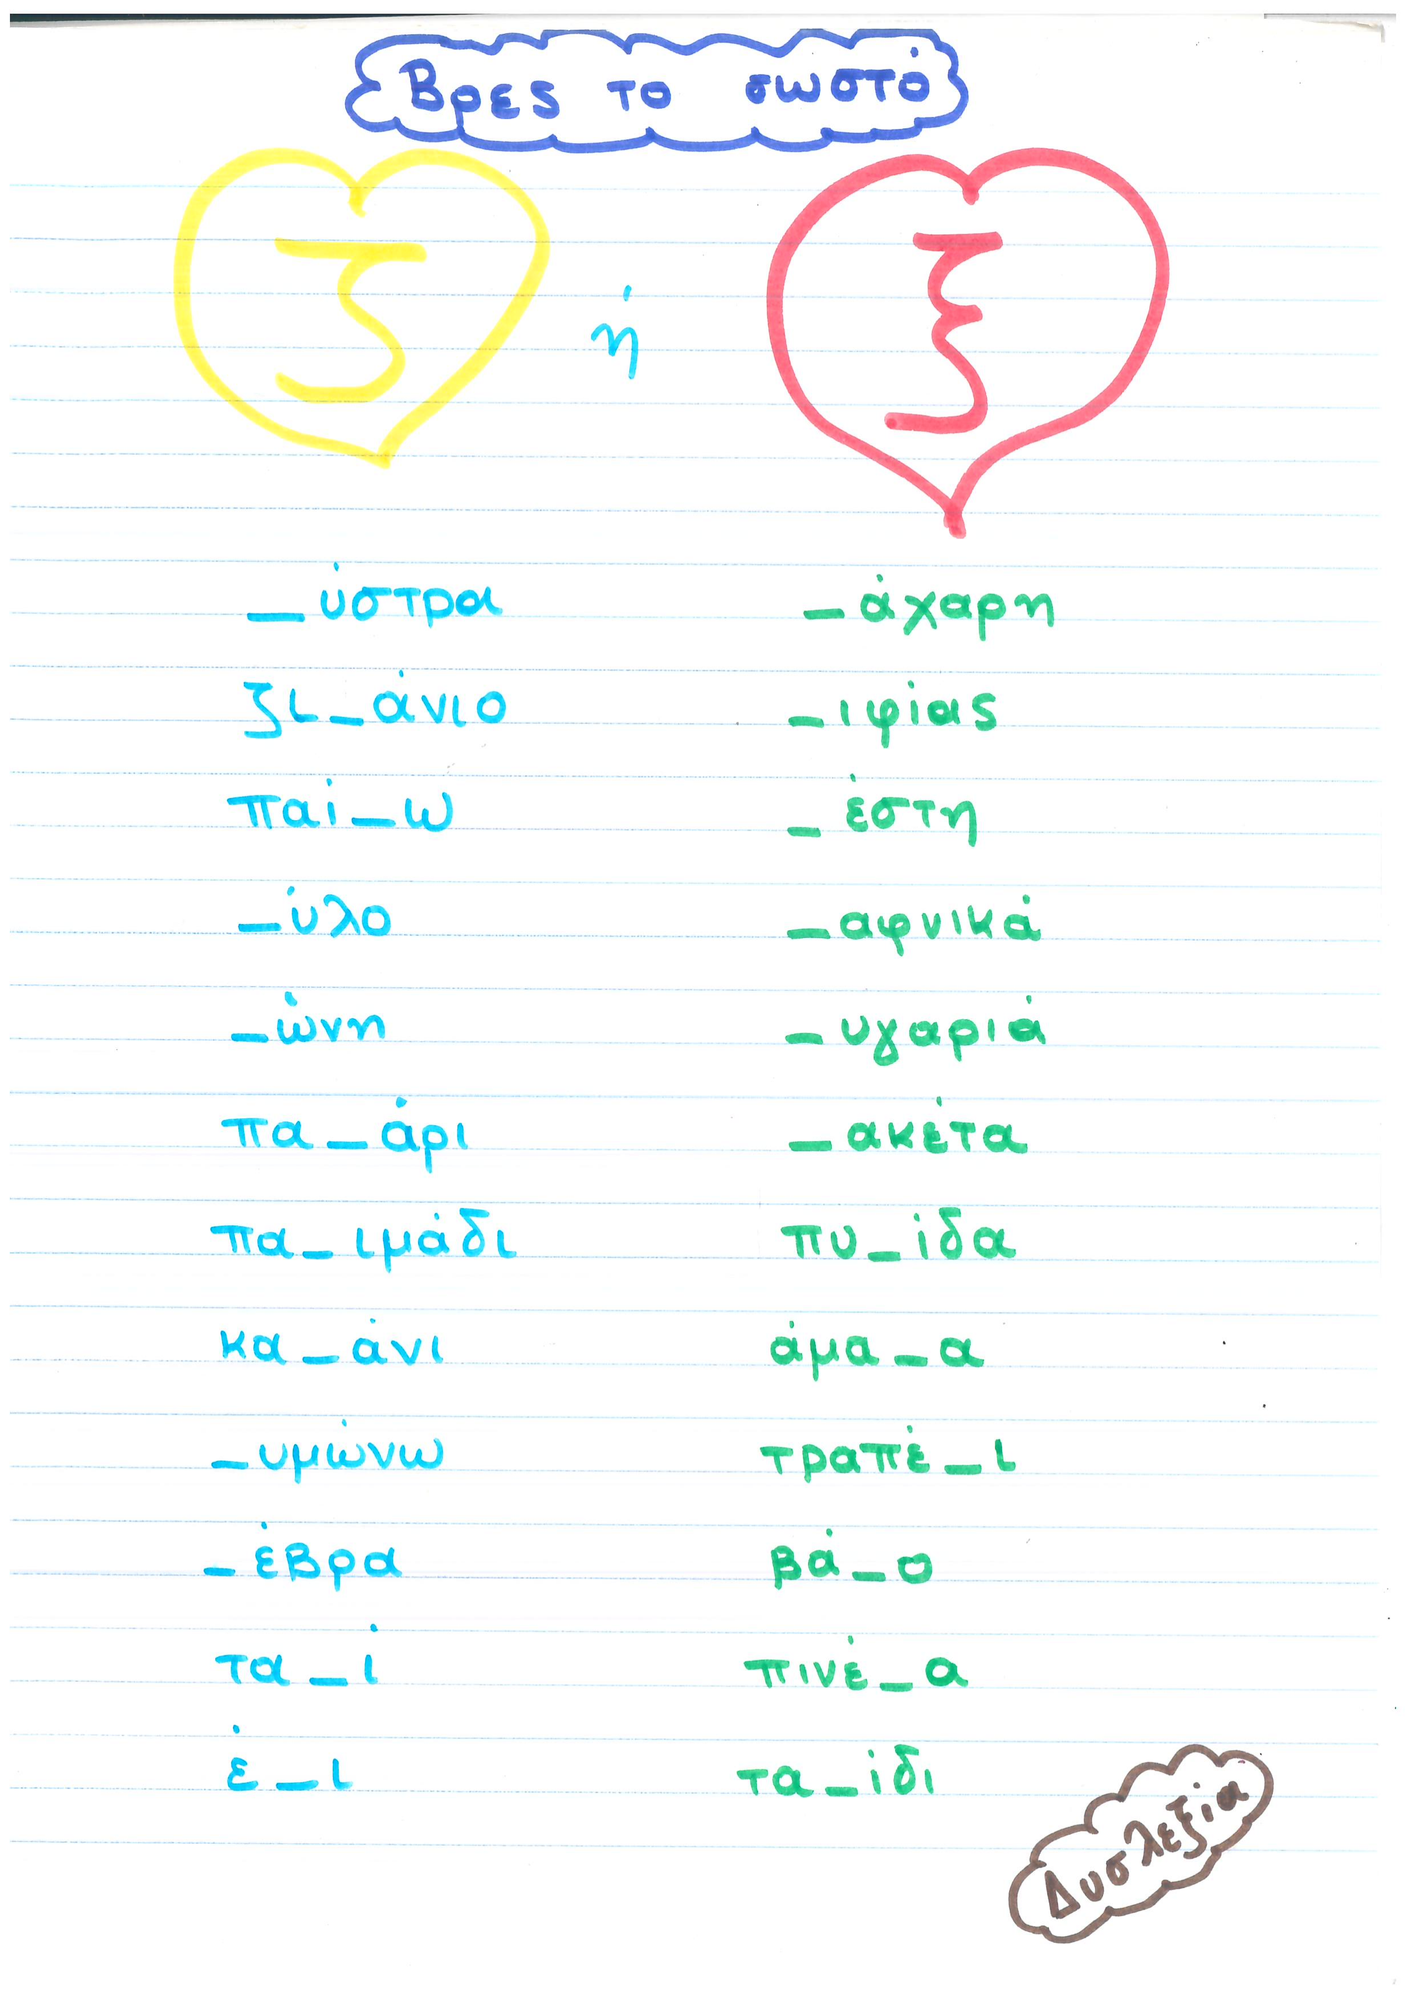 Βρες το σωστό
ζ ή ξ
_ύστρα _άχαρη
ζι_άνιο _ιφίας
παί_ω _έστη
_ύλο _αφνικά
_ώνη _υγαριά
πα_άρι _ακέτα
πα_ιμάδι πυ_ίδα
κα_άνι άμα_α
_υμώνω τραπέ_ι
_έβρα βά_ο
τα_ί πινέ_α
έ_ι τα_ίδι
Δυσλεξία